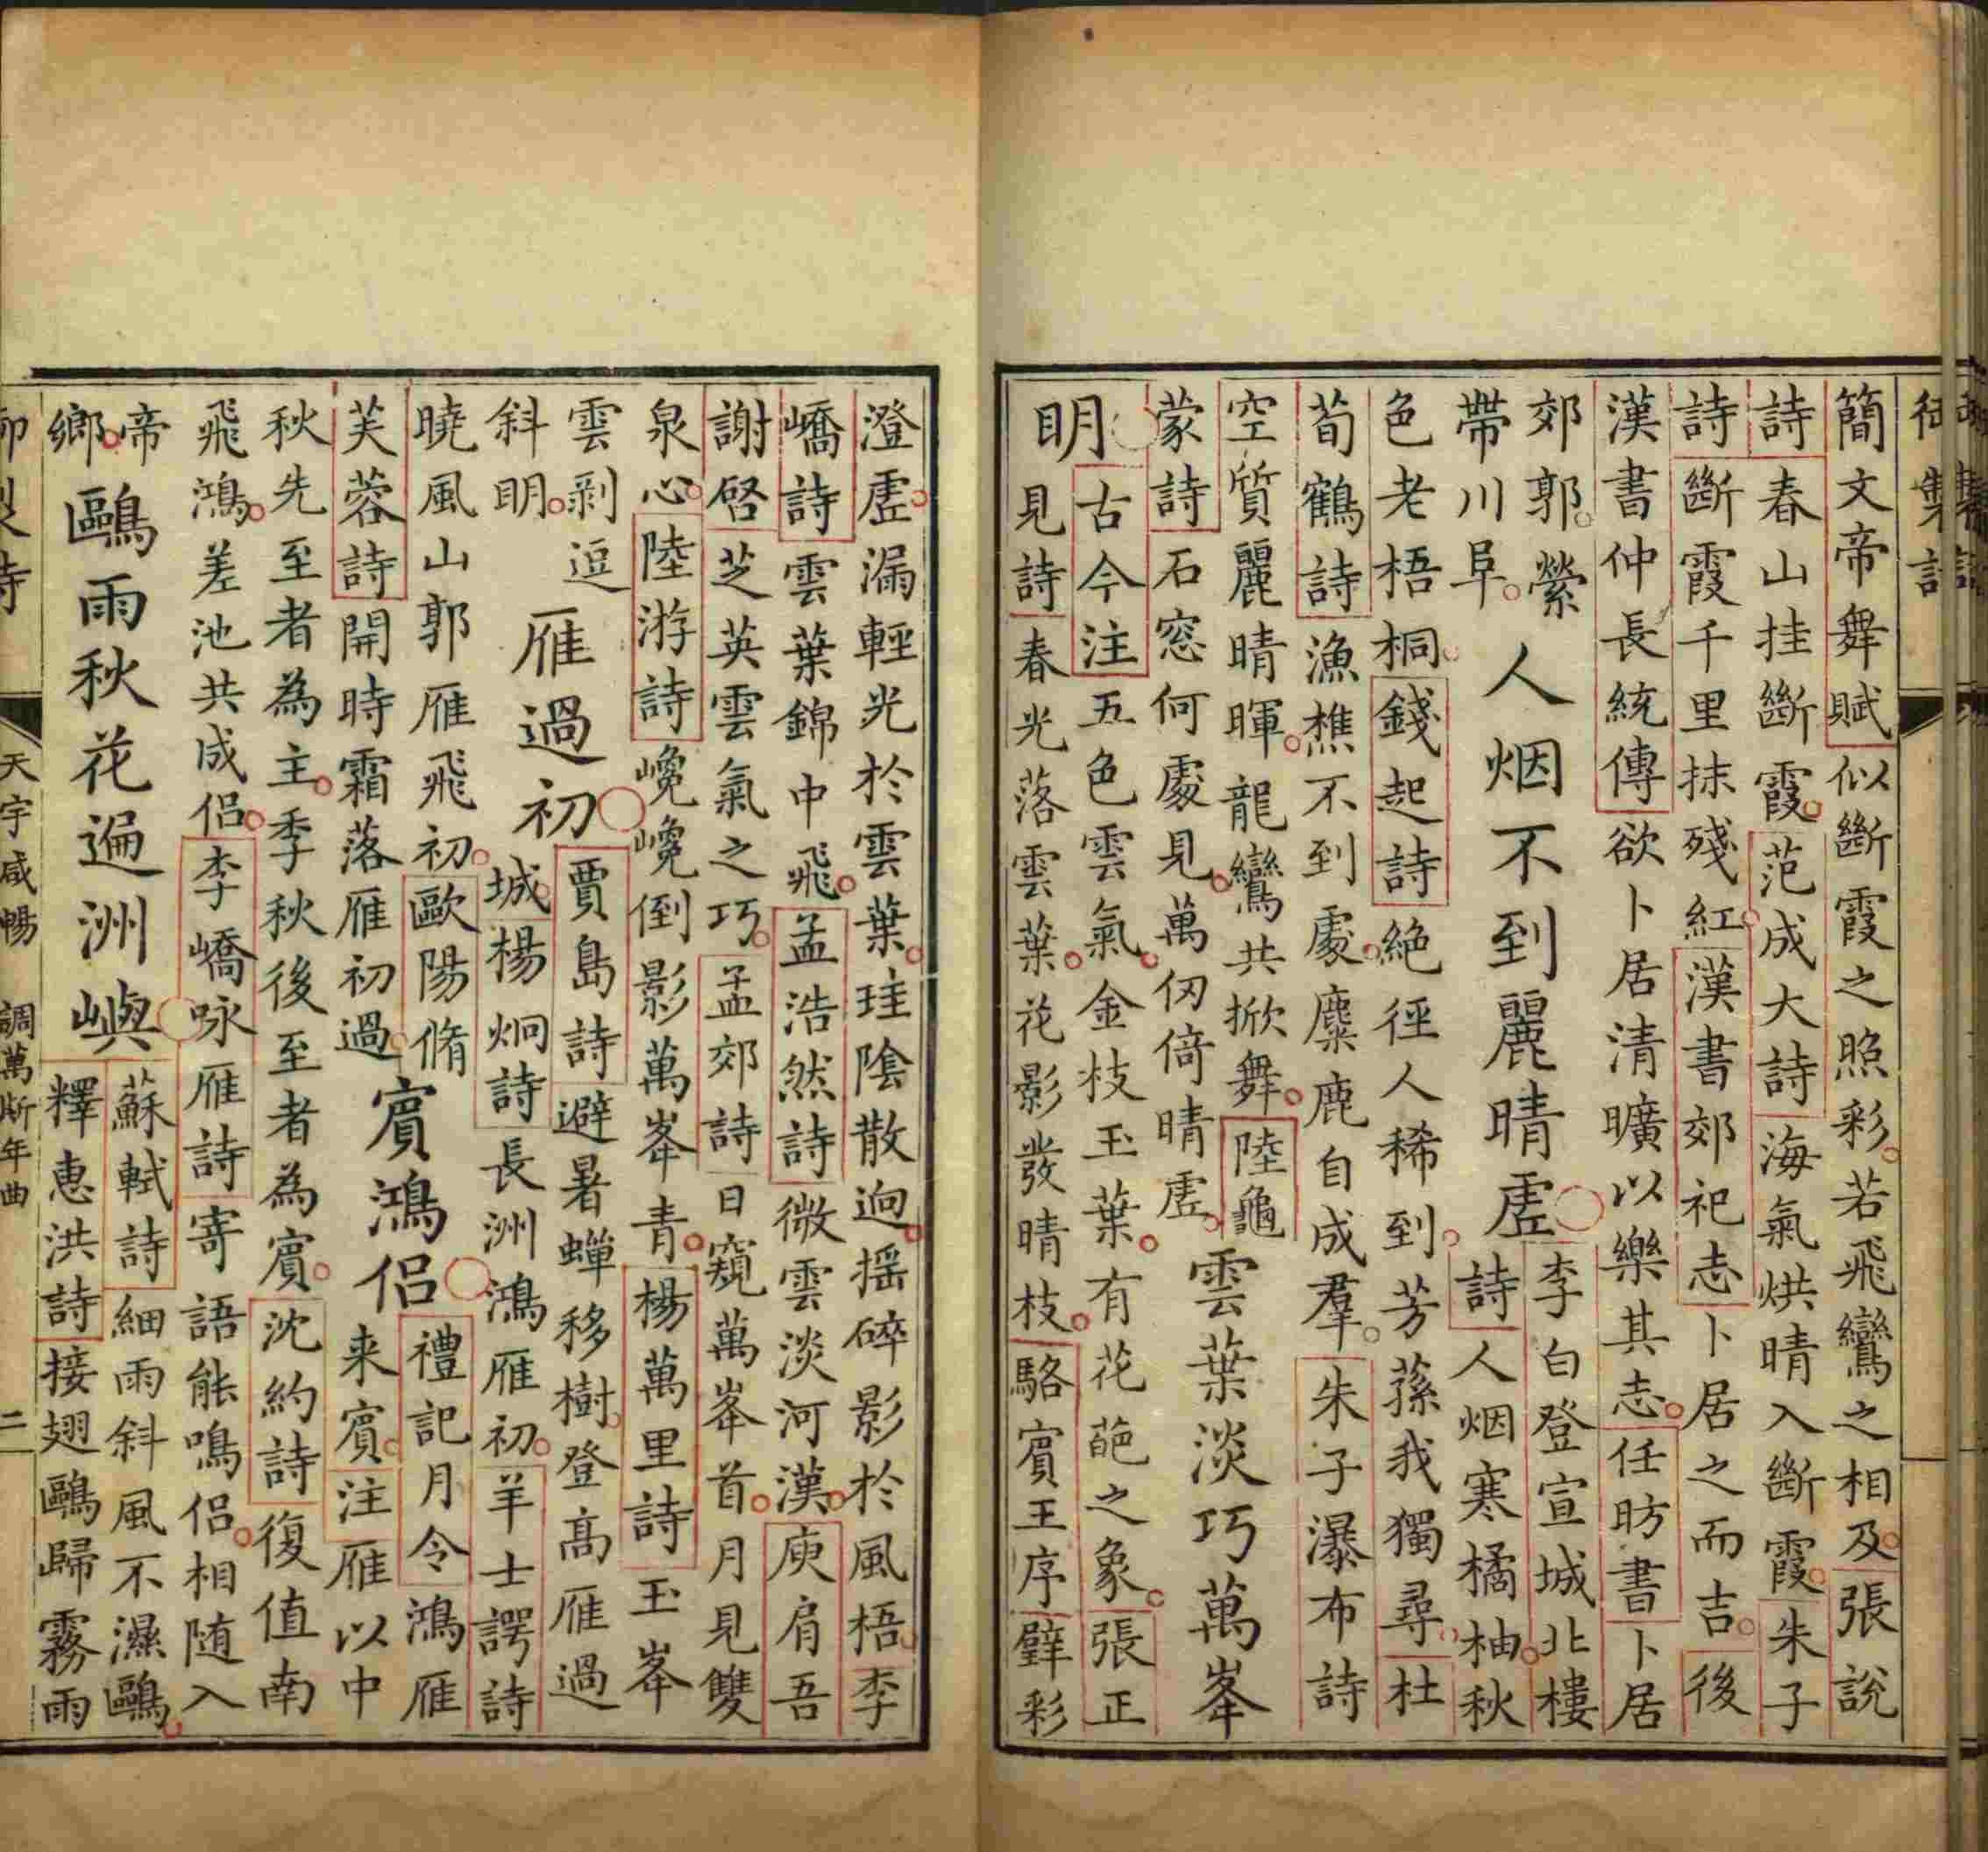 御製詩
簡文帝舞賦似斷霞之照彩若飛鸞之相及張說
詩春山挂斷霞范成大詩海氣烘晴入斷霞朱子
詩斷霞千里抹殘紅漢書郊祀志卜居之而吉後
漢書仲長統傳欲卜居清曠以樂其志任昉書卜居
郊郭縈
帶川阜
人烟不到麗晴虛
李白登宣城北樓
詩人烟寒橘柚秋
色老梧桐錢起詩絕徑人稀到芳蓀我獨尋杜
荀鶴詩漁樵不到處麋鹿自成羣朱子瀑布詩
空質麗晴暉龍鸞共掀舞陸龜
蒙詩石窓何處見萬仞倚晴虛
雲葉淡巧萬峯
明
古今注五色雲氣金枝玉葉有花葩之象張正
見詩春光落雲葉花影發晴枝駱賓王序璧彩
澄虛漏輕光於雲葉珪陰散逈揺碎影於風梧李
嶠詩雲葉錦中飛孟浩然詩微雲淡河漢庾肩吾
謝啓芝英雲氣之巧孟郊詩日窺萬峯首月見雙
泉心陸游詩巉巉倒影萬峯青楊萬里詩玉峯
雲剥逗
斜明
雁過初
賈島詩避暑蟬移樹登髙雁過
城楊炯詩長洲鴻雁初羊士諤詩
曉風山郭雁飛初歐陽脩
芙蓉詩開時霜落雁初過
賓鴻侶
禮記月令鴻雁
来賓注雁以中
秋先至者為主季秋後至者為賓沈約詩復值南
飛鴻差池共成侶李嶠咏雁詩寄語能鳴侶相随入
帝
鄉
鷗雨秋花遍洲嶼
蘇軾詩細雨斜風不濕鷗
釋惠洪詩接翅鷗歸霧雨
御製詩
天宇咸暢 調萬斯年曲
二